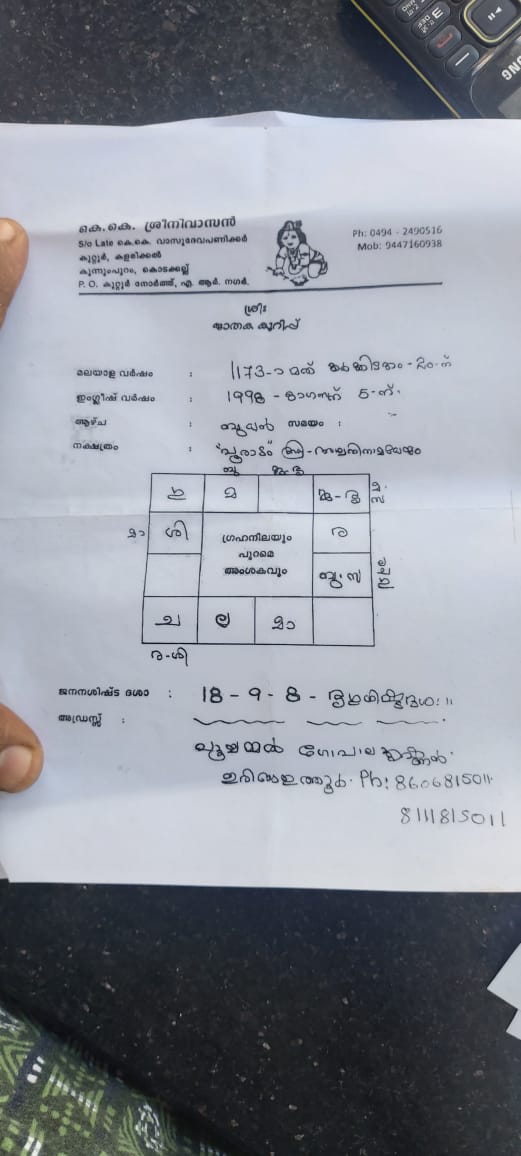 കെ.കെ. ശ്രീനിവാസൻ
S/o Late കെ.കെ. വാസുദേവപണിക്കർ
കുറ്റൂർ, കളരിക്കൽ
കുന്നുംപുറം, കൊടക്കല്ല്
P. O. കുറ്റൂർ നോർത്ത്, എ. ആർ. നഗർ.
Ph: 0494 - 2490516
Mob: 9447160938
ശ്രീഃ
ജാതക കുറിപ്പ്
മലയാള വർഷം : 1173-ാമത് കർക്കിടകം - 20-ന്
ഇംഗ്ലീഷ് വർഷം : 1998 - ആഗസ്ത് 5-ന്.
ആഴ്ച : ബുധൻ സമയം :
നക്ഷത്രം : പൂരാടം
ബു
മ
മാ ശി
ഗ്രഹനിലയും
പുറമെ
അംശകവും
ര
ബു.സ
ച ല മാ
ര-ശി
ജനനശിഷ്ട ദശാ : 18 - 9 - 8 -
അഡ്രസ്സ് :
ഗോപാലകൃഷ്ണൻ.
Ph: 8606815011
8111815011